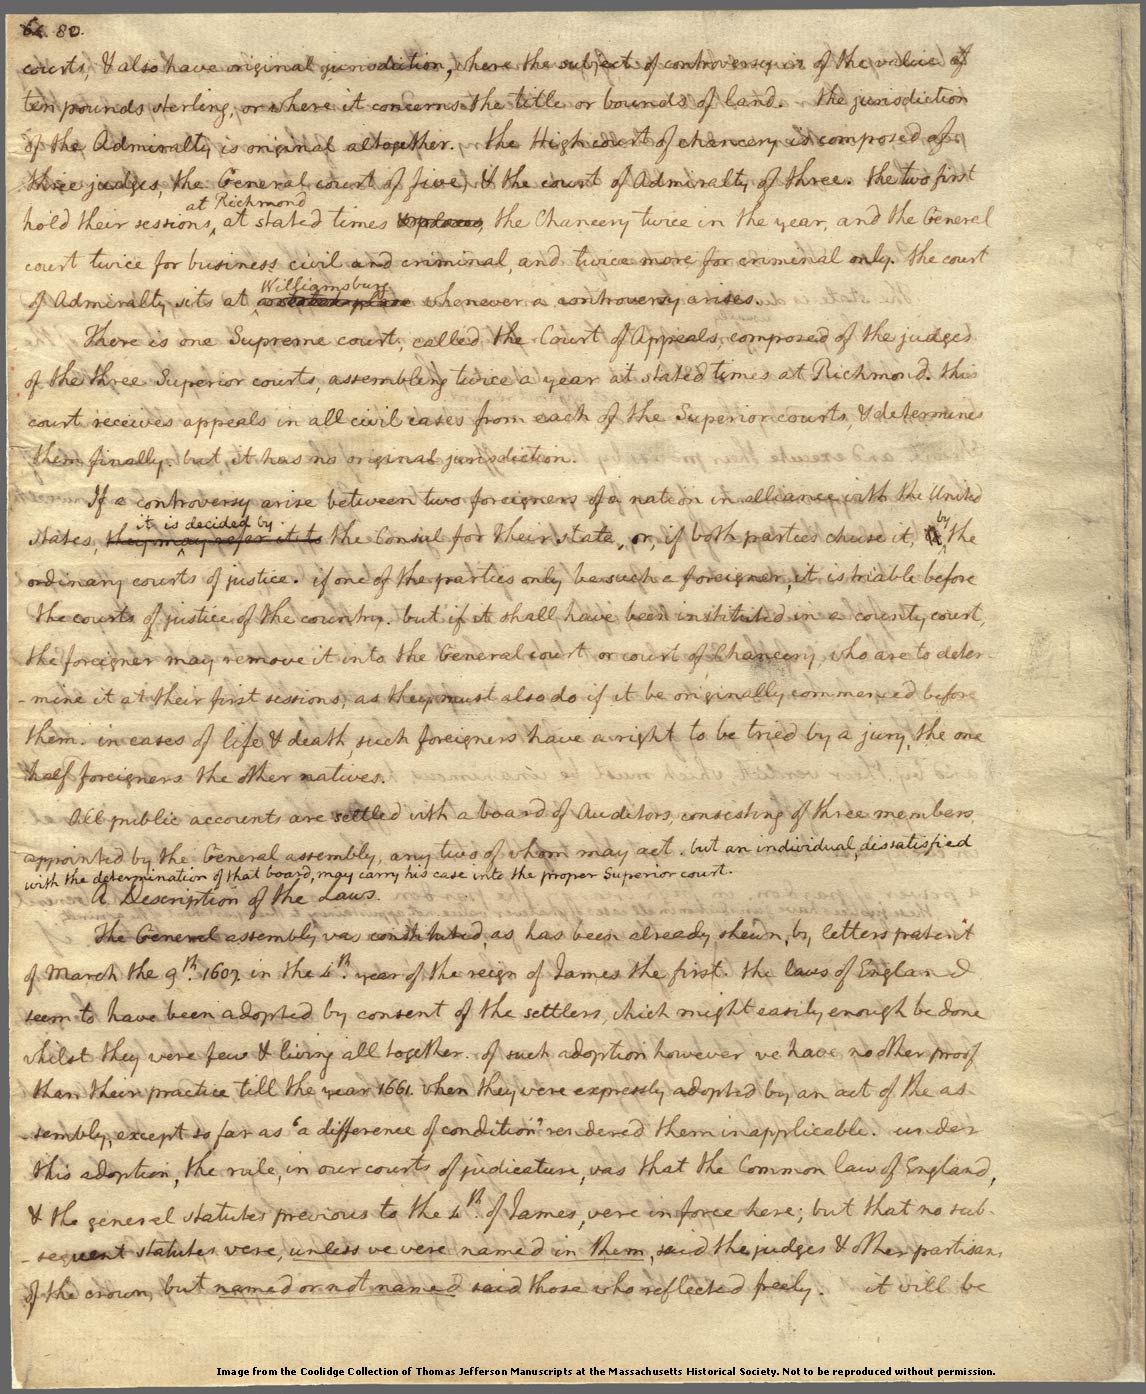 80.
courts, & also have original jurisdiction, where the subject of controversy is of the value of
ten pounds sterling, or where it concerns the title or bounds of land. the jurisdiction
of the Admiralty is original altogether. the High court of chancery is composed of
three judges, the General court of five, & the court of Admiralty of three. the two first
at Richmond
hold their sessions, at stated times & places, the Chancery twice in the year, and the General
court twice for business civil and criminal, and twice more for criminal only. the court
Williamsburg
of Admiralty sits at a stated place whenever a controversy arises.
There is one Supreme court, called the Court of Appeals, composed of the judges
of the three Superior courts, assembling twice a year at stated times at Richmond. this
court receives appeals in all civil cases from each of the Superior courts, & determines
them finally. but it has no original jurisdiction.
If a controversy arise between two foreigners of a nation in alliance with the United
it is decided by by
states, they may refer it to the Consul for their state, or, if both parties chuse it, the
ordinary courts of justice. if one of the parties only be such a foreigner, it is triable before
the courts of justice of the country. but if it shall have been instituted in a county court,
the foreigner may remove it into the General court or court of Chancery, who are to deter-
-mine it at their first sessions, as they must also do if it be originally commenced before
them. in cases of life & death, such foreigners have a right to be tried by a jury, the one
half foreigners the other natives.
All public accounts are settled with a board of Auditors, consisting of three members,
appointed by the General assembly, any two of whom may act. but an individual, dissatisfied
with the determination of that board, may carry his case into the proper Superior court.
A Description of the Laws.
The General assembly was constituted, as has been already shewn, by letters patent
of March the 9th. 1607. in the 4th. year of the reign of James the first. the laws of England
seem to have been adopted by consent of the settlers, which might easily enough be done
whilst they were few & living all together. of such adoption however we have no other proof
than their practice till the year 1661. when they were expressly adopted by an act of the as-
-sembly, except so far as 'a difference of condition' rendered them inapplicable. under
this adoption, the rule, in our courts of judicature, was that the Common law of England,
& the general statutes previous to the 4th. of James, were in force here; but that no sub-
-sequent statutes were, unless we were named in them, said the judges & other partisans
of the crown, but named or not named said those who reflected freely. it will be
Image from the Coolidge Collection of Thomas Jefferson Manuscripts at the Massachusetts Historical Society. Not to be reproduced without permission.